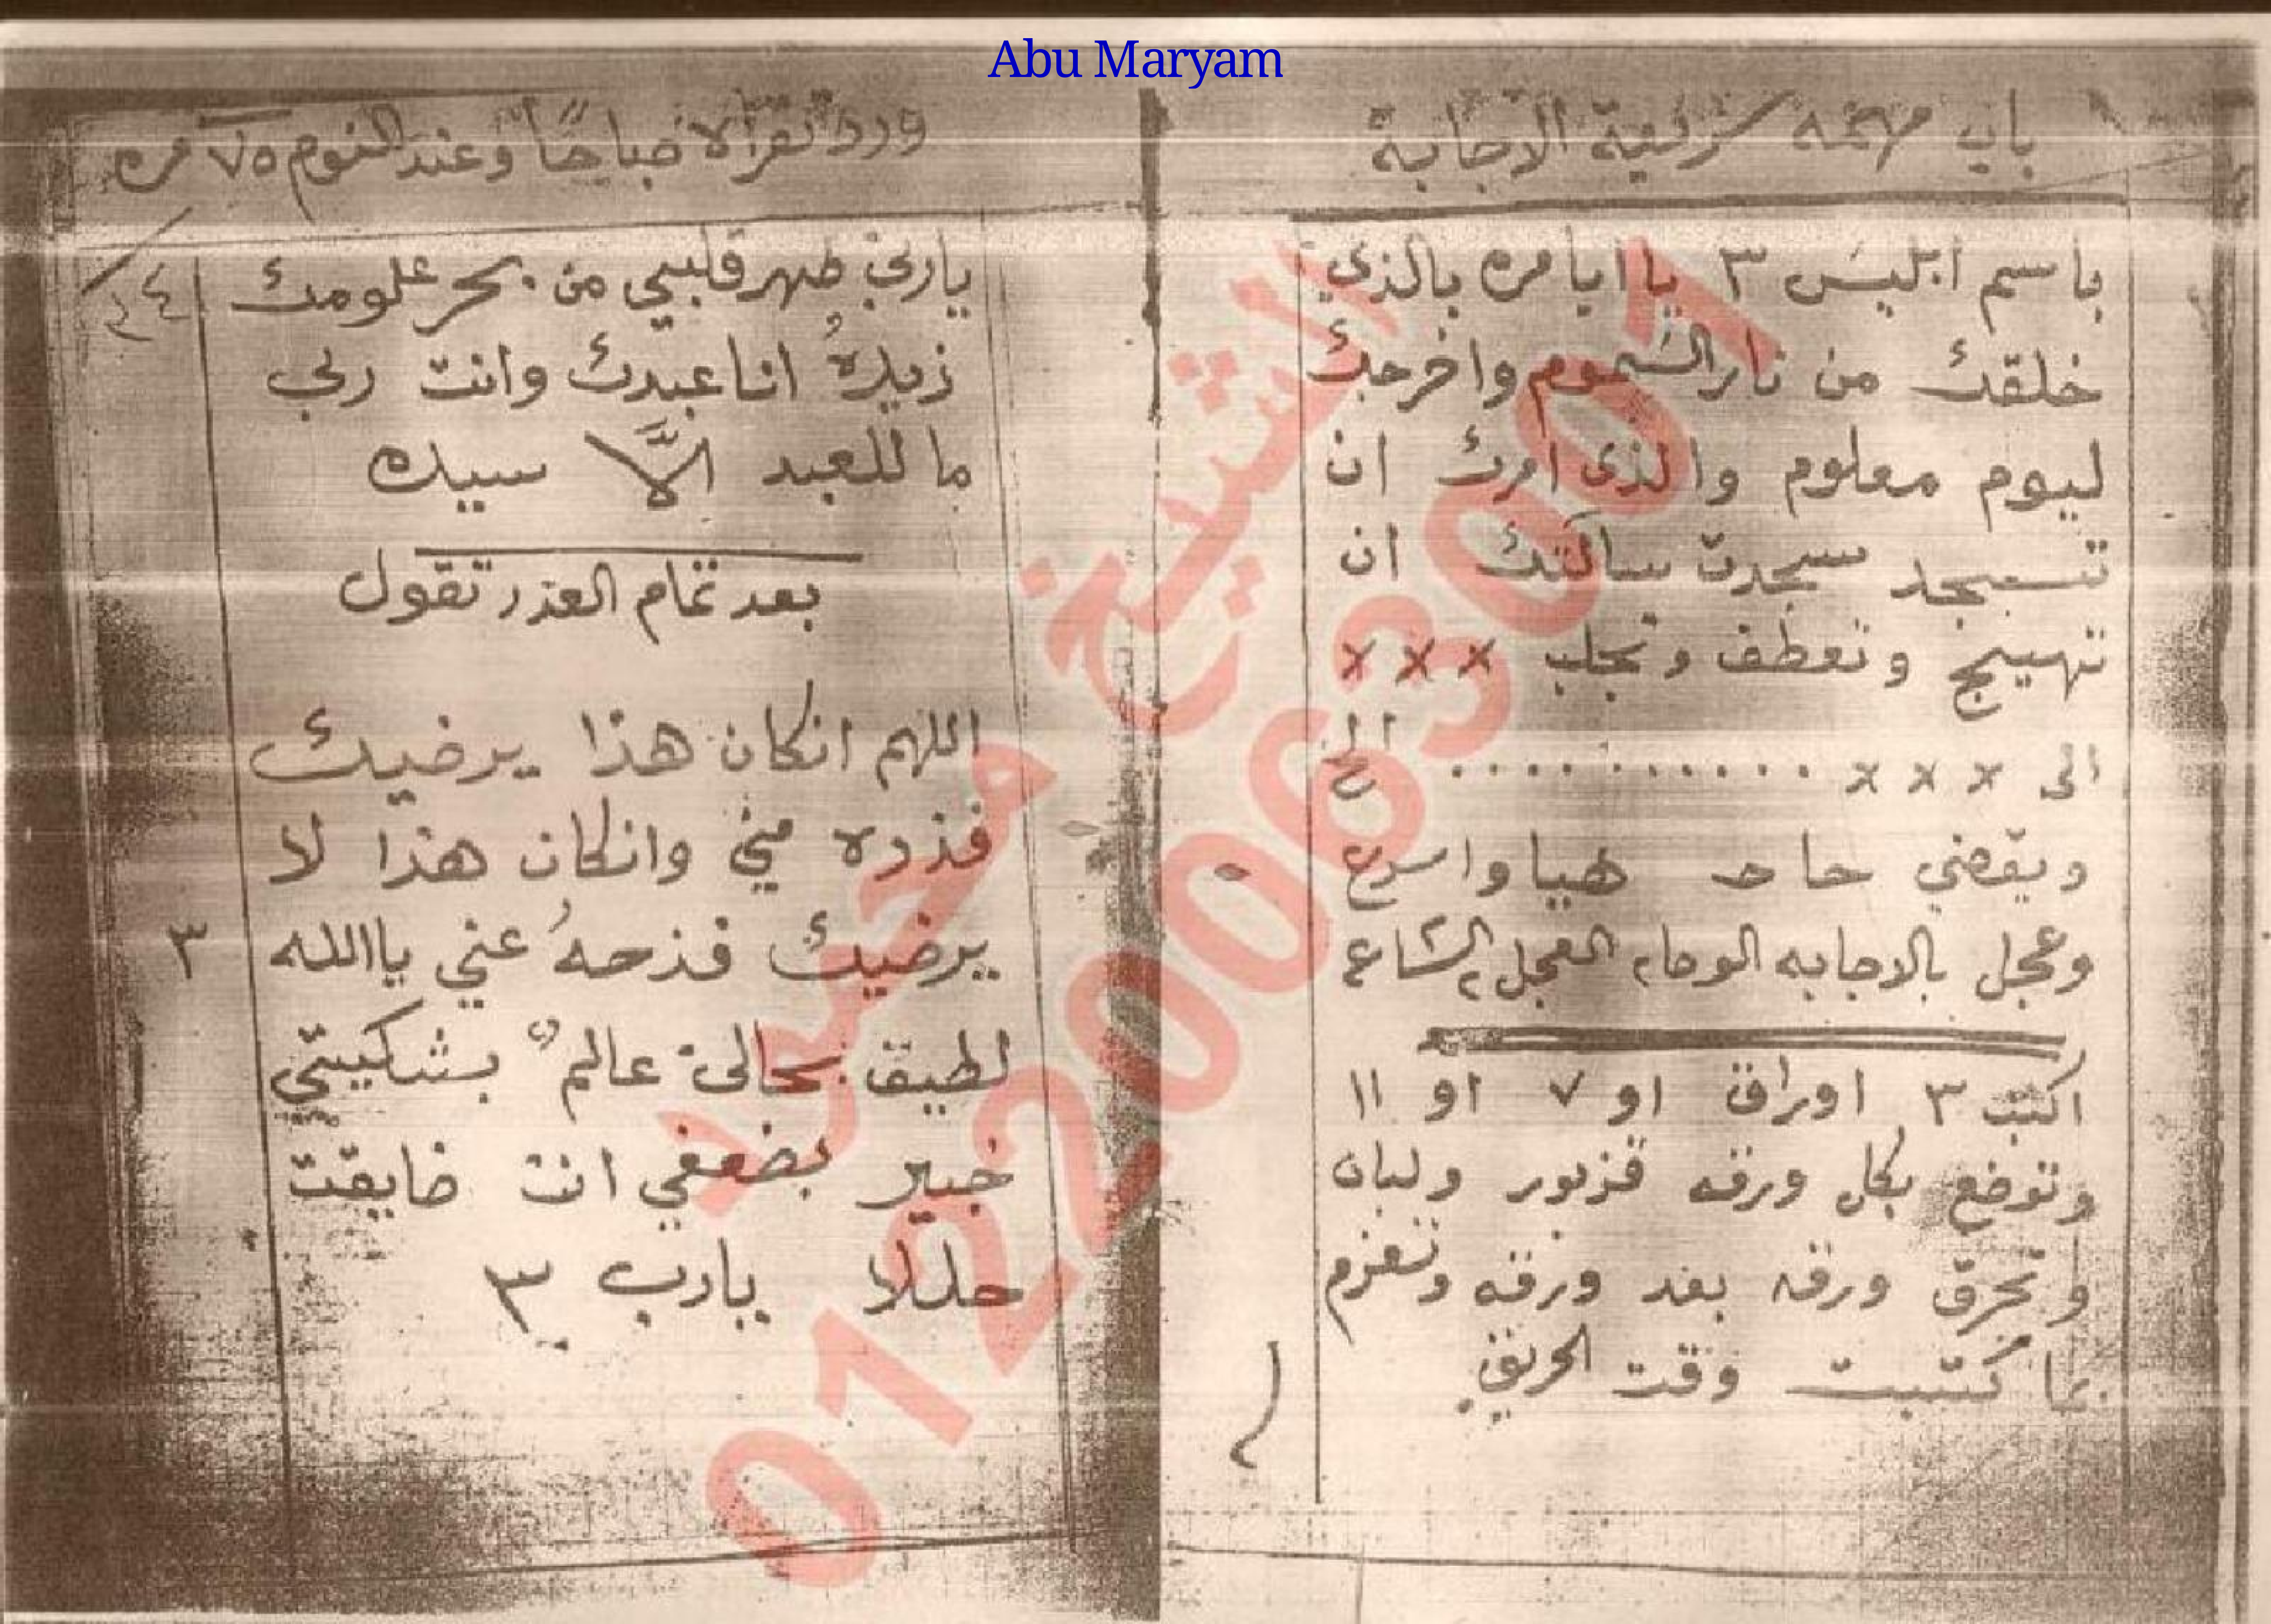 Abu Maryam
باب مهمه سريعة الاجابة
باسم ابليس ٣ يا ايا مره بالذي
خلقك من نار السموم واخرجك
ليوم معلوم والذى امرك ان
تسجد سجدت سالتك ان
تهييج وتعطف وتجلب × × ×
الى × × × ............ الخ
ويقضي حاحه هيا واسرع
وعجل بالاجابه الوحا٢ العجل٢ الساعه
اكتب ٣ اوراق او ٧ او ١١
وتوضع بكل ورقه قزبور ولبان
وتحرق ورقه بعد ورقه وتعزم
بما كتبت وقت الحريق
ورد تقرأ صباحًا وعند النوم ٧٥ مره
ياربي طهر قلبي من بحر علومك
زيدهُ انا عبدك وانت ربي
ما للعبد الَّا سيده
بعد تمام العدد تقول
اللهم انكان هذا يرضيك
فزده مني وانكان هذا لا
يرضيك فزحهُ عني ياالله ٣
لطيف بحالى عالمٌ بشكيتي
خبير بضعفي انت ضايقت
حللا يارب ٣
الشيخ محمد
01220063001